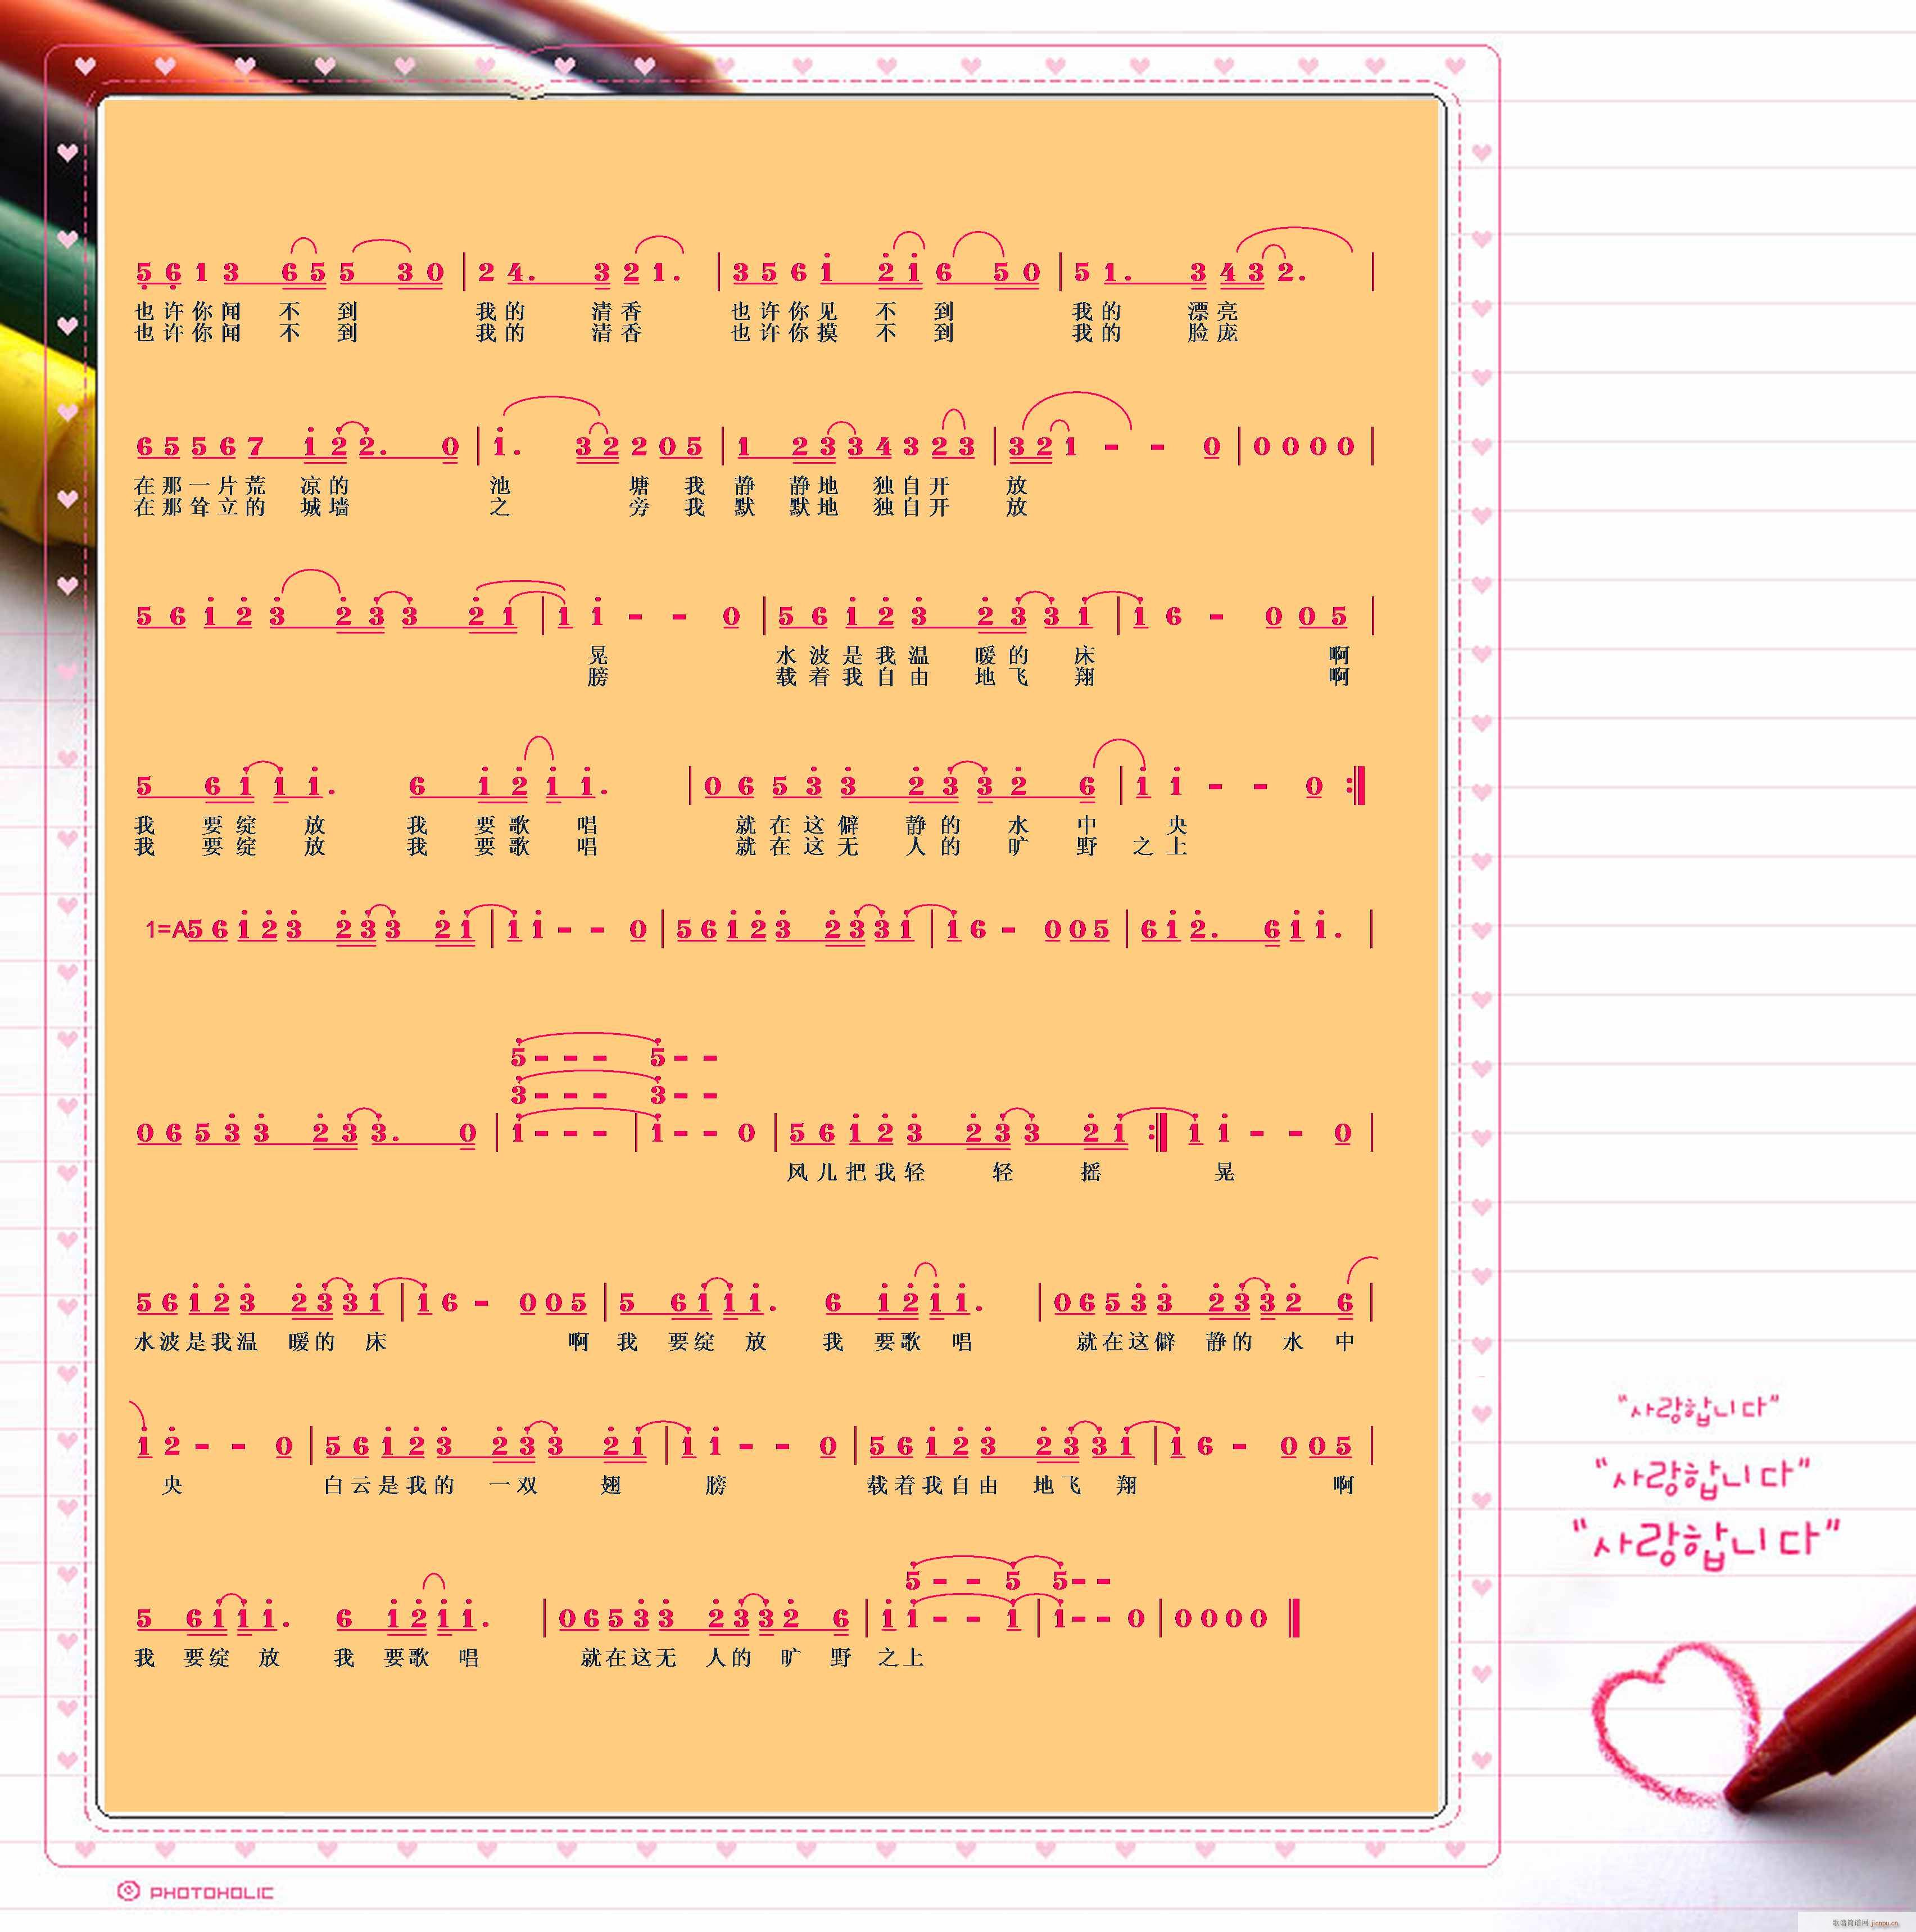 5 6 1 3 6 5 5 3 0 | 2 4. 3 2 1. | 3 5 6 1 2 1 6 5 0 | 5 1. 3 4 3 2. |
也许你闻 不 到 我的 清香 也许你见 不 到 我的 漂亮
也许你闻 不 到 我的 清香 也许你摸 不 到 我的 脸庞
6 5 5 6 7 1 2 2. 0 | 1. 3 2 2 0 5 | 1 2 3 3 4 3 2 3 | 3 2 1 - - 0 | 0 0 0 0 |
在那一片荒 凉的 池 塘 我 静 静地 独自开 放
在那耸立的 城墙 之 旁 我 默 默地 独自开 放
5 6 1 2 3 2 3 3 2 1 | 1 1 - - 0 | 5 6 1 2 3 2 3 3 1 | 1 6 - 0 0 5 |
晃 水波是我温 暖的 床 啊
膀 载着我自由 地飞 翔 啊
5 6 1 1 1. 6 1 2 1 1. | 0 6 5 3 3 2 3 3 2 6 | 1 1 - - 0 :||
我 要绽 放 我 要歌 唱 就在这僻 静的 水 中 央
我 要绽 放 我 要歌 唱 就在这无 人的 旷 野 之上
1=A 5 6 1 2 3 2 3 3 2 1 | 1 1 - - 0 | 5 6 1 2 3 2 3 3 1 | 1 6 - 0 0 5 | 6 1 2. 6 1 1. |
5 - - - 5 - -
3 - - - 3 - -
0 6 5 3 3 2 3 3. 0 | 1 - - - | 1 - - 0 | 5 6 1 2 3 2 3 3 2 1 :|| 1 1 - - 0 |
风儿把我轻 轻 摇 晃
5 6 1 2 3 2 3 3 1 | 1 6 - 0 0 5 | 5 6 1 1 1. 6 1 2 1 1. | 0 6 5 3 3 2 3 3 2 6 |
水波是我温 暖的 床 啊 我 要绽 放 我 要歌 唱 就在这僻 静的 水 中
1 2 - - 0 | 5 6 1 2 3 2 3 3 2 1 | 1 1 - - 0 | 5 6 1 2 3 2 3 3 1 | 1 6 - 0 0 5 |
央 白云是我的 一双 翅 膀 载着我自由 地飞 翔 啊
5 - - 5 5 - -
5 6 1 1 1. 6 1 2 1 1. | 0 6 5 3 3 2 3 3 2 6 | 1 1 - - 1 | 1 - - 0 | 0 0 0 0 ||
我 要绽 放 我 要歌 唱 就在这无 人的 旷 野 之上
"사랑합니다"
"사랑합니다"
"사랑합니다"
PHOTOHOLIC
歌谱简谱网 jianpu.cn